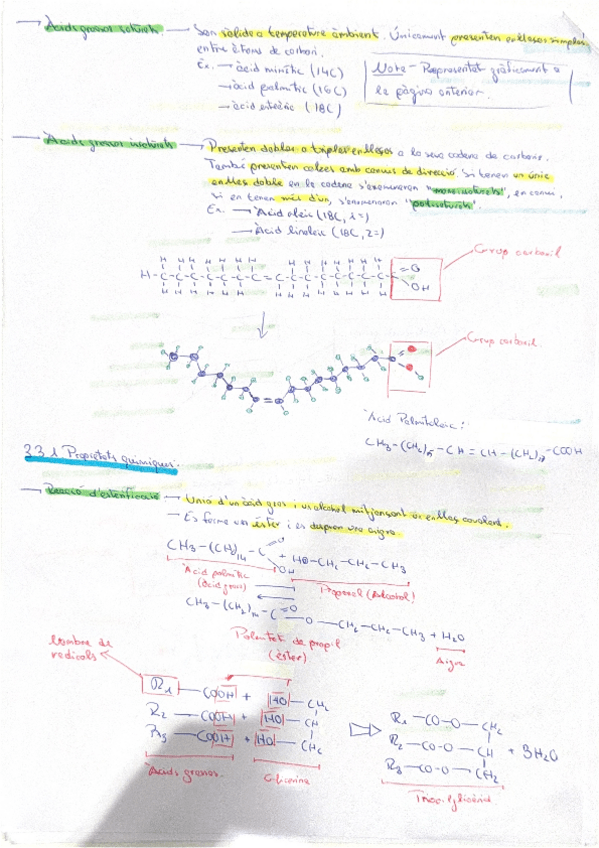 → Àcids grassos saturats → Són sòlids a temperatura ambient. Únicament presenten enllaços simples
entre àtoms de carboni.
Ex. → àcid mirístic (14C)
→ àcid palmític (16C)
→ àcid esteàric (18C)
Nota - Representat gràficament a
la pàgina anterior.
→ Àcids grassos insaturats → Presenten dobles o triples enllaços a la seva cadena de carbonis.
També presenten colzes amb canvis de direcció. Si tenen un únic
enllaç doble en la cadena s'anomenaran "monoinsaturats", en canvi,
si en tenen més d'un, s'anomenaran "poliinsaturats".
Ex. → Àcid oleic (18C, 1=)
→ Àcid linoleic (18C, 2=)
Grup carboxil
H H H H H H H H H H H H H H
H-C-C-C-C-C-C-C-C=C-C-C-C-C-C-C-C=O
OH
Grup carboxil
Àcid Palmitoleic:
CH3-(CH2)5-CH=CH-(CH2)7-COOH
3.3.1 Propietats químiques.
→ Reacció d'esterificació → Unió d'un àcid gras i un alcohol mitjançant un enllaç covalent.
→ Es forma un èster i es desprèn una aigua
CH3-(CH2)14-C O OH + HO-CH2-CH2-CH3
Àcid palmític
(àcid gras)
Propanol (Alcohol)
CH3-(CH2)14-C=O - O - CH2-CH2-CH3 + H2O
Palmitat de propil
(èster)
Aigua
Nombre de
radicals
R1 - COOH + HO - CH2
R2 - COOH + HO - CH
R3 - COOH + HO - CH2
R1 - CO-O - CH2
R2 - CO-O - CH + 3H2O
R3 - CO-O - CH2
Àcids grassos
Glicerina
Triacilglicèrid